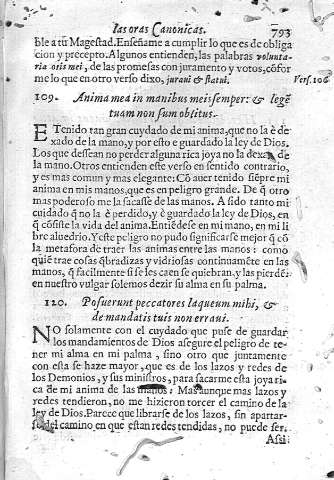 las oras Canonicas. 793
ble a tu Magestad. Enseñame a cumplir lo que es de obliga
cion y precepto. Algunos entienden, las palabras voluntaria
oris mei, de las promesas con juramento y votos, cōfor
me lo que en otro verso dixo, juravi & statui. Vers. 106
109. Anima mea in manibus meis semper: & legē
tuam non sum oblitus.
E Tenido tan gran cuydado de mi anima, que no la è de
xado de la mano, y por esto e guardado la ley de Dios.
Los que desean no perder alguna rica joya no la dexan de
la mano. Otros entienden este verso en sentido contrario,
y es mas comun y mas elegante: Cō auer tenido siēpre mi
anima en mis manos, que es en peligro grande. De q̄ otro
mas poderoso me la sacasse de las manos. A sido tanto mi
cuidado q̄ no la è perdido, y è guardado la ley de Dios, en
q̄ cōsiste la vida del anima. Entiēdese en mi mano, en mi li
bre aluedrio. Y este peligro no pudo significarse mejor q̄ cō
la metafora de traer las animas entre las manos: como
quiē trae cosas q̄bradizas y vidriosas continuamēte en las
manos, q̄ facilmente si se les caen se quiebran, y las pierdē:
en nuestro vulgar solemos dezir su alma en su palma.
120. Posuerunt peccatores laqueum mihi, &
de mandatis tuis non erraui.
NO solamente con el cuydado que puse de guardar
los mandamientos de Dios asegure el peligro de te-
ner mi alma en mi palma, sino otro que juntamente
con esta se haze mayor, que es de los lazos y redes de
los Demonios, y sus ministros, para sacarme esta joya ri-
ca de mi anima de las manos: Mas aunque mas lazos y
redes tendieron, no me hizieron torcer el camino de la
ley de Dios. Parece que librarse de los lazos, sin apartar-
se del camino en que estan redes tendidas, no puede ser.
Assi